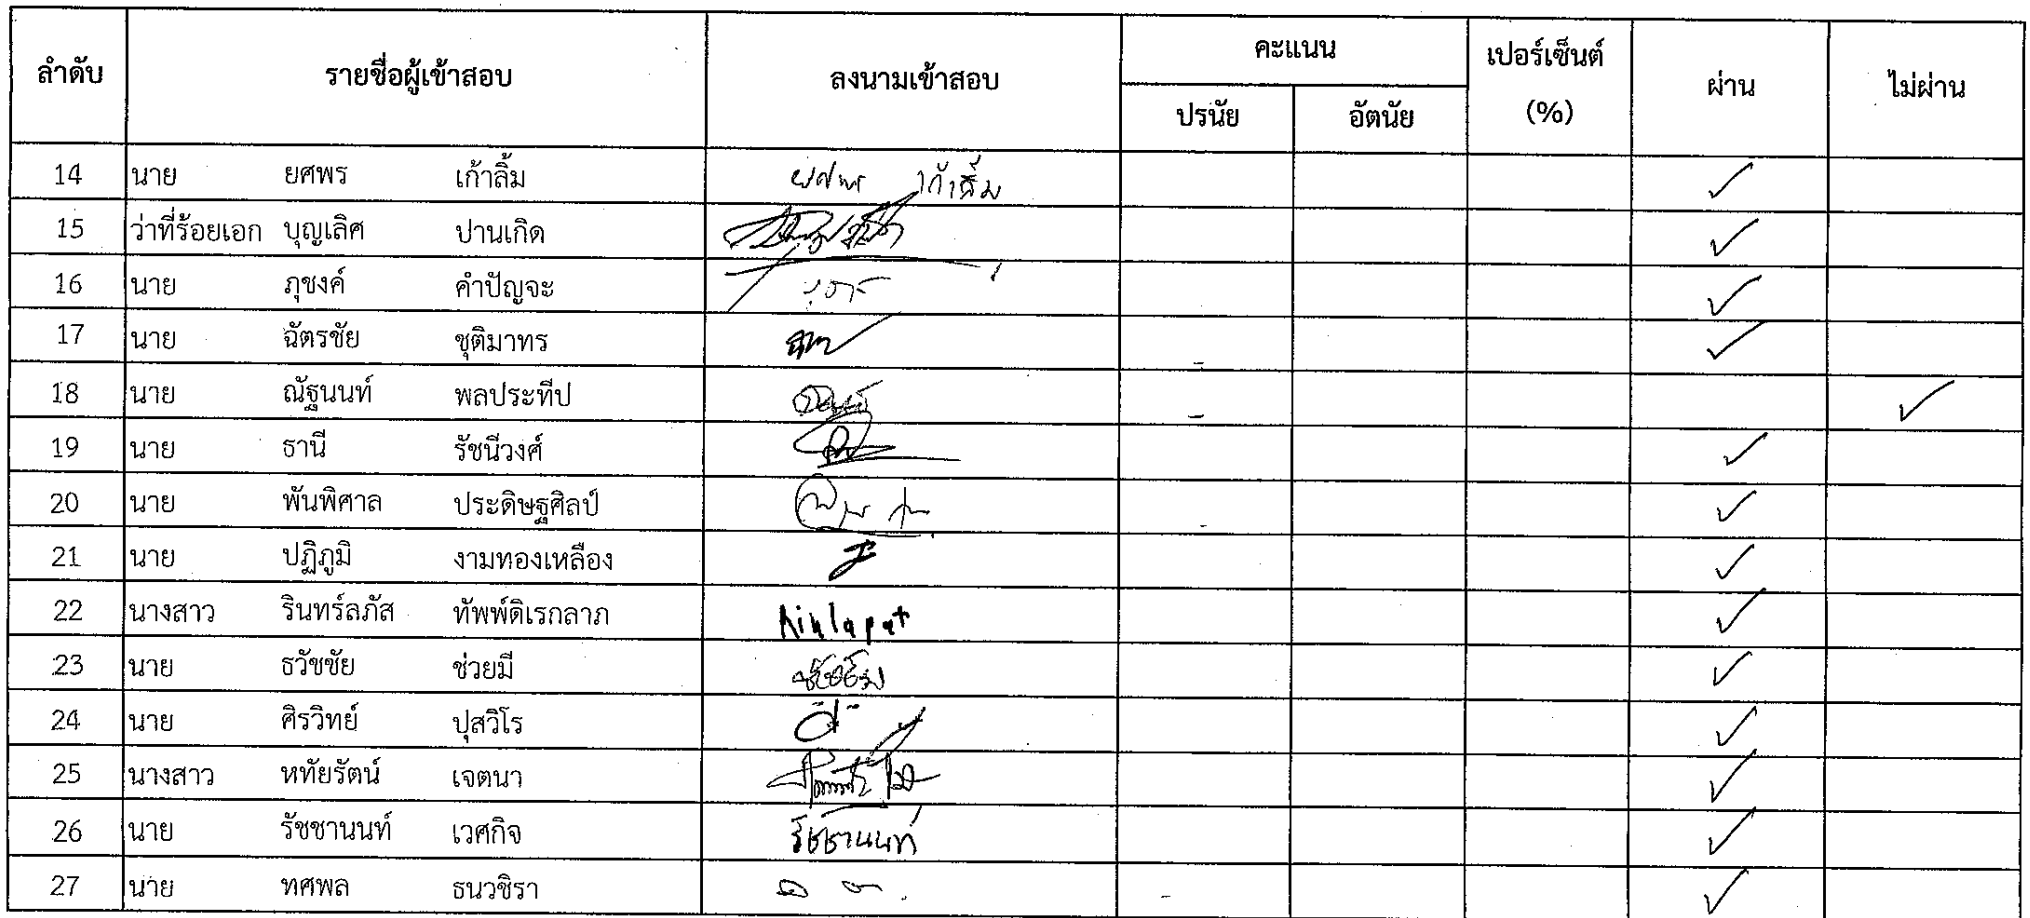 ลำดับ รายชื่อผู้เข้าสอบ ลงนามเข้าสอบ คะแนน เปอร์เซ็นต์ (%) ผ่าน ไม่ผ่าน
ปรนัย อัตนัย
14 นาย ยศพร เก้าลิ้ม ยศพร เก้าลิ้ม ✓
15 ว่าที่ร้อยเอก บุญเลิศ ปานเกิด ✓
16 นาย ภุชงค์ คำปัญจะ ✓
17 นาย ฉัตรชัย ชุติมาทร ✓
18 นาย ณัฐนนท์ พลประทีป ✓
19 นาย ธานี รัชนีวงศ์ ✓
20 นาย พันพิศาล ประดิษฐศิลป์ ✓
21 นาย ปฏิภูมิ งามทองเหลือง ✓
22 นางสาว รินทร์ลภัส ทัพพ์ดิเรกลาภ Rinlapat ✓
23 นาย ธวัชชัย ช่วยมี ✓
24 นาย ศิรวิทย์ ปุสวิโร ✓
25 นางสาว หทัยรัตน์ เจตนา ✓
26 นาย รัชชานนท์ เวศกิจ รัชชานนท์ ✓
27 นาย ทศพล ธนวชิรา ✓